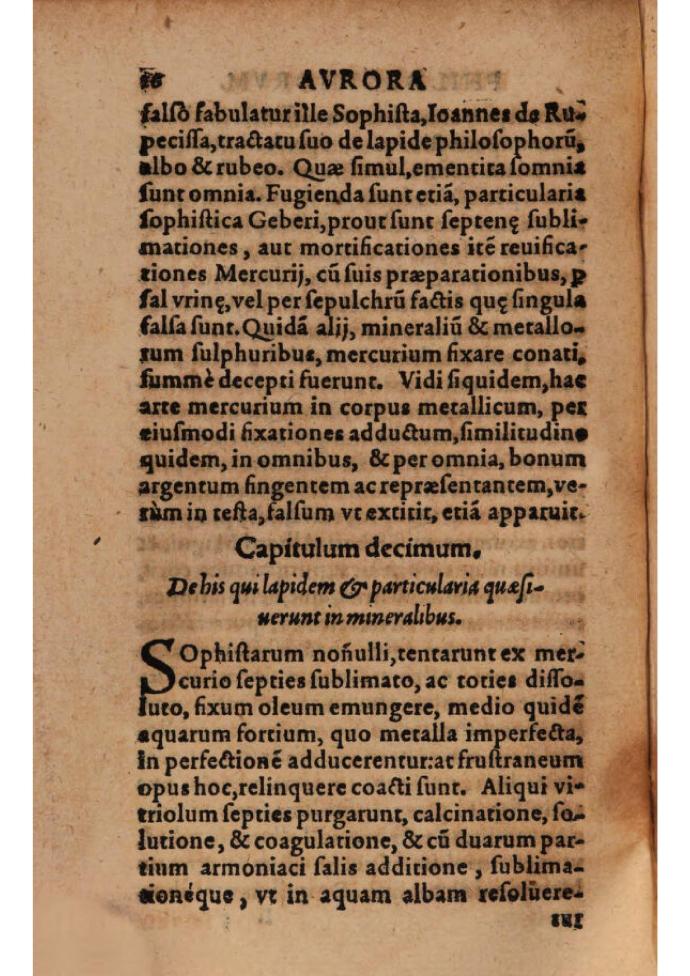 26 AVRORA
falsò fabulatur ille Sophista, Ioannes de Ru-
pecissa, tractatu suo de lapide philosophorũ,
albo & rubeo. Quæ simul, ementita somnia
sunt omnia. Fugienda sunt etiã, particularia
sophistica Geberi, prout sunt septenę subli-
mationes, aut mortificationes itẽ reuifica-
tiones Mercurij, cũ suis præparationibus, ꝑ
sal vrinę, vel per sepulchrũ factis quę singula
falsa sunt. Quidã alij, mineraliũ & metallo-
rum sulphuribus, mercurium fixare conati,
summè decepti fuerunt. Vidi siquidem, hac
arte mercurium in corpus metallicum, per
eiusmodi fixationes adductum, similitudine
quidem, in omnibus, & per omnia, bonum
argentum fingentem ac repræsentantem, ve-
rùm in testa, falsum vt extitit, etiã apparuit.
Capitulum decimum.
De his qui lapidem & particularia quæsi-
uerunt in mineralibus.
SOphistarum noñulli, tentarunt ex mer-
curio septies sublimato, ac toties disso-
luto, fixum oleum emungere, medio quidẽ
aquarum fortium, quo metalla imperfecta,
in perfectionẽ adducerentur: at frustraneum
opus hoc, relinquere coacti sunt. Aliqui vi-
triolum septies purgarunt, calcinatione, so-
lutione, & coagulatione, & cũ duarum par-
tium armoniaci salis additione, sublima-
tionéque, vt in aquam albam resolũere-